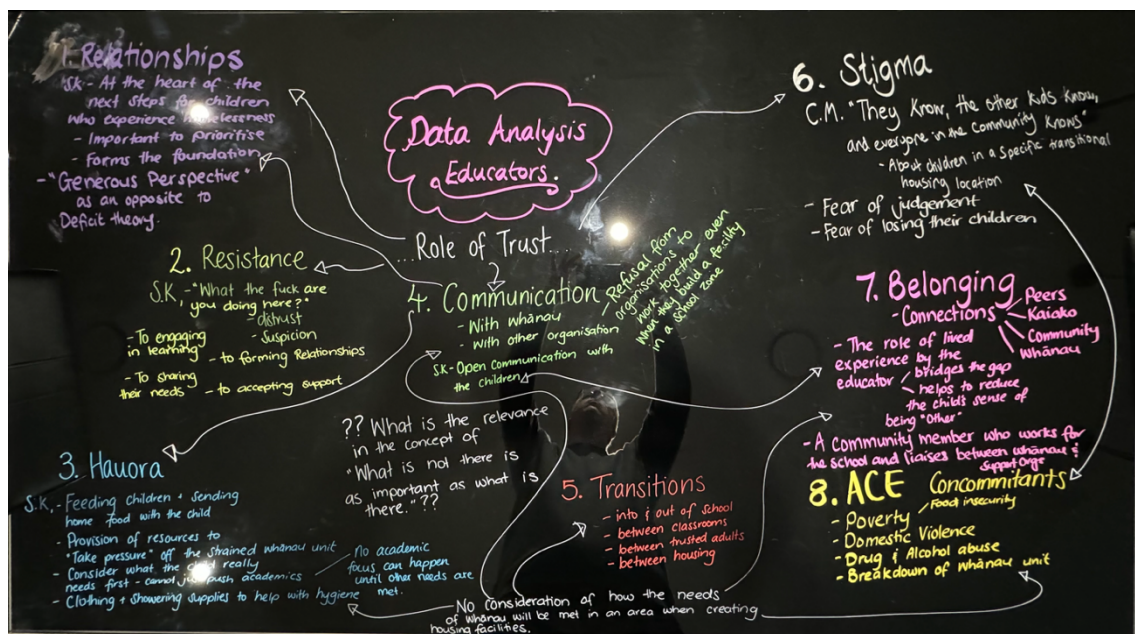 1. Relationships
SK - At the heart of the
next steps for children
who experience homelessness
- Important to prioritise
- Forms the foundation
- "Generous Perspective"
as an opposite to
Deficit theory.
Data Analysis
Educators.
...Role of Trust...
2. Resistance
S.K, - "What the fuck are
you doing here?"
- distrust
- Suspicion
- To engaging
in learning
- to forming Relationships
- To sharing
their needs
- to accepting support
3. Hauora
S.K, - Feeding children + sending
home food with the child
- Provision of resources to
"Take pressure" off the strained whānau unit
- Consider what the child really
needs first - cannot just push academics
No academic
focus can happen
until other needs are
met.
- Clothing + showering supplies to help with hygiene
4. Communication
- With whānau
- With other organisation
Refusal from
organisations to
work together even
when they build a facility
in a school zone
SK - Open communication with
the children
?? What is the relevance
in the concept of
"What is not there is
as important as what is
there."??
5. Transitions
- into & out of school
- between classrooms
- between trusted adults
- between housing
No consideration of how the needs
of whānau will be met in an area when creating
housing facilities.
6. Stigma
C.M. "They know, the other kids know,
and everyone in the community knows"
- About children in a specific transitional
housing location
- Fear of judgement
- Fear of losing their children
7. Belonging
- Connections
Peers
Kaiako
Community
Whānau
- The role of lived
experience by the
educator
bridges the gap
helps to reduce
the child's sense of
being "Other"
- A Community member who works for
the school and liaises between whānau &
support orgs
8. ACE Concommitants
- Poverty
Food insecurity
- Domestic Violence
- Drug & Alcohol abuse
- Breakdown of whānau unit